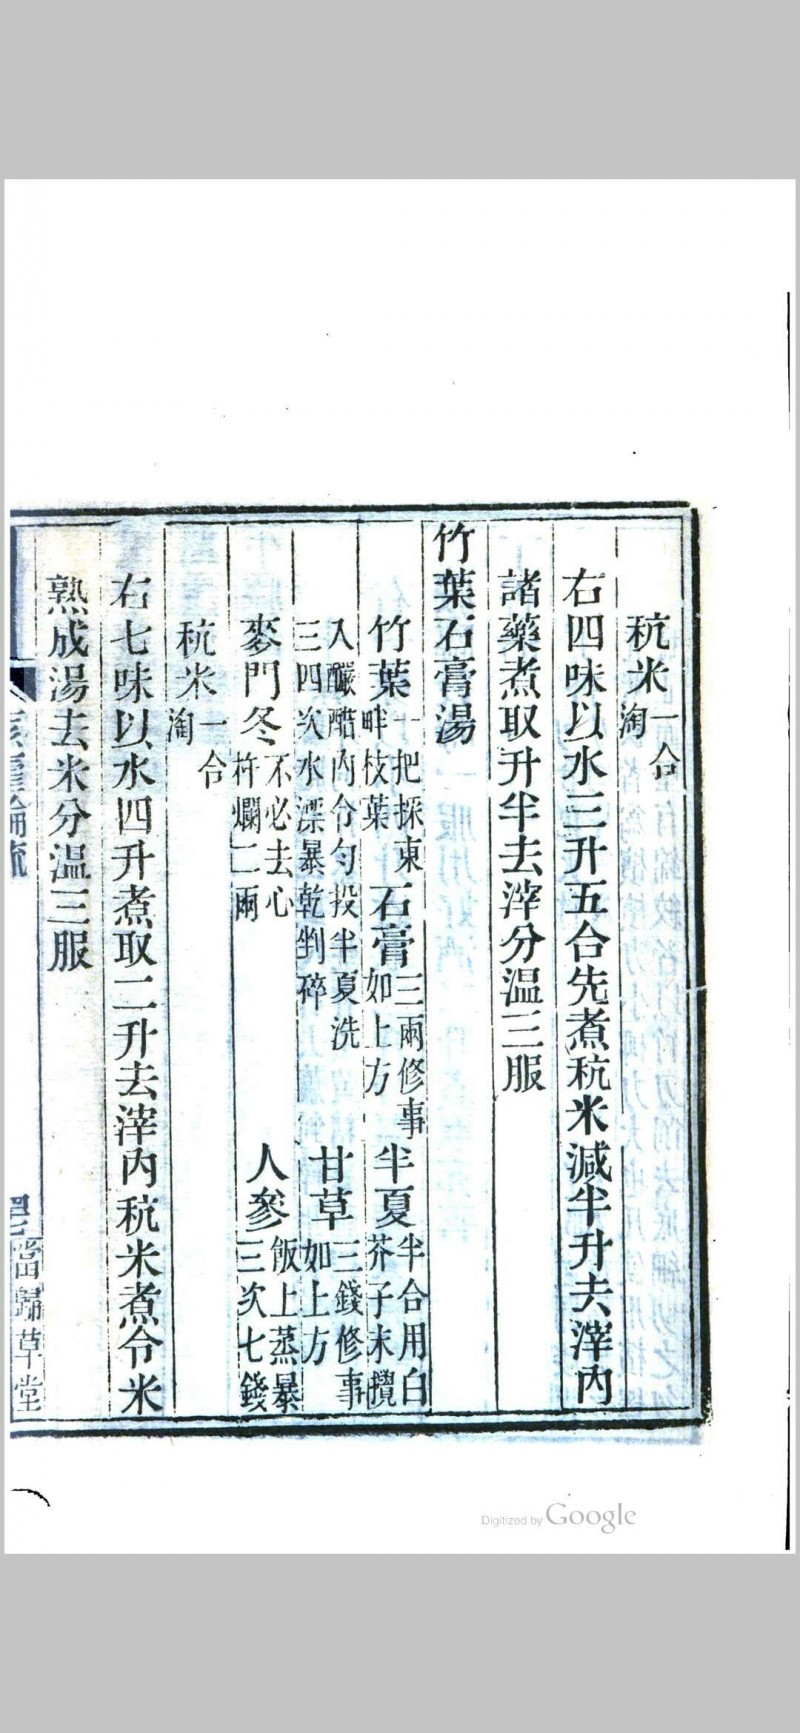 秔米一合淘
右四味以水三升五合先煮秔米減半升去滓內
諸藥煮取升半去滓分温三服
竹葉石膏湯
竹葉一把採東畔枝葉 石膏三兩修事如上方 半夏半合用白芥子末攪
入釅醋內令勻投半夏洗三四次水漂暴乾剉碎 甘草三錢修事如上方
麥門冬不必去心杵爛二兩 人參飯上蒸暴三次七錢
秔米一合淘
右七味以水四升煮取二升去滓內秔米煮令米
熟成湯去米分温三服
論疏
當歸草堂
Digitized by Google